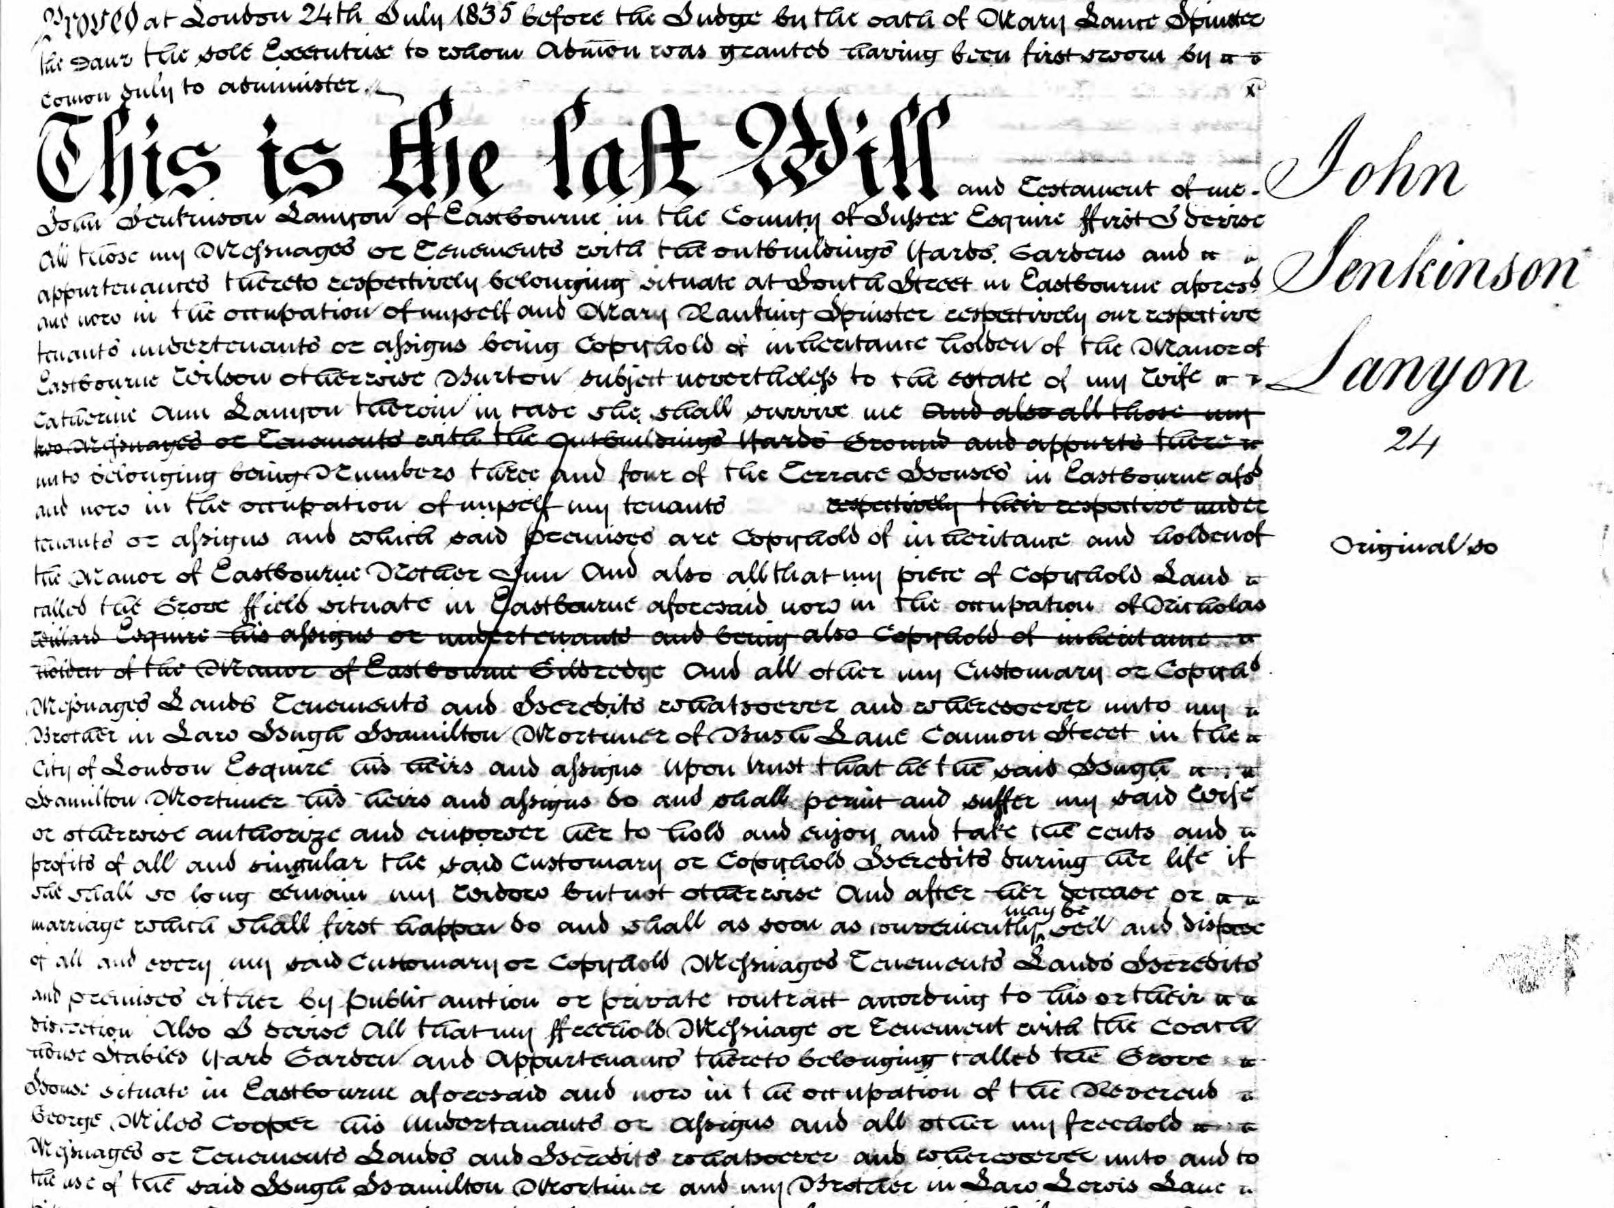 Proved at London 24th July 1835 before the Judge by the oath of Mary Lance Spinster
the Daur the sole Executrix to whom Admōn was granted having been first sworn by
comon duly to administer.
This is the last Will and Testament of me
John Jenkinson Lanyon of Eastbourne in the County of Sussex Esquire ffirst I devise
All those my Messuages or Tenements with the outbuildings Yards Gardens and
appurtenances thereto respectively belonging situate at South Street in Eastbourne aforesd
and now in the occupation of myself and Mary Ranking Spinster respectively our respective
tenants undertenants or assigns being Copyhold of inheritance holden of the Manor of
Eastbourne Wilson otherwise Burton subject nevertheless to the estate of my Wife
Catherine Ann Lanyon therein in case she shall survive me And also all those my
two Messuages or Tenements with the Outbuildings Yards Ground and appurts there
unto belonging being Numbers three and four of the Terrace Houses in Eastbourne afsd
and now in the occupation of myself my tenants respectively their respective under
tenants or assigns and which said premises are Copyhold of inheritance and holden of
the Manor of Eastbourne Nether Inn And also all that my piece of Copyhold Land
called the Grove ffield situate in Eastbourne aforesaid now in the occupation of Nicholas
Esquire his assigns or undertenants and being also Copyhold of inheritance
holden of the Manor of Eastbourne Gildredge And all other my Customary or Copyhd
Messuages Lands Tenements and Heredits whatsoever and wheresoever unto my
Brother in Law Hugh Hamilton Mortimer of Bush Lane Cannon Street in the
City of London Esquire his heirs and assigns Upon trust that he the said Hugh
Hamilton Mortimer his heirs and assigns do and shall permit and suffer my said Wife
or otherwise authorize and empower her to hold and enjoy and take the rents and
profits of all and singular the said Customary or Copyhold Heredits during her life if
she shall so long remain my Widow but not otherwise And after her decease or
marriage which shall first happen do and shall as soon as conveniently may be sell and dispose
of all and every my said Customary or Copyhold Messuages Tenements Lands Heredits
and premises either by public auction or private contract according to his or their
discretion Also I devise All that my ffreehold Messuage or Tenement with the Coach
house Stables Yard Garden and Appurtenants thereto belonging called the Grove
House situate in Eastbourne aforesaid and now in the occupation of the Reverend
George Miles Cooper his Undertanants or Assigns and all other my freehold
Messuages or Tenements Lands and Heredits whatsoever and wheresoever unto and to
the use of the said Hugh Hamilton Mortimer and my Brother in Law Lewis Lane
John
Jenkinson
Lanyon
24
Original so